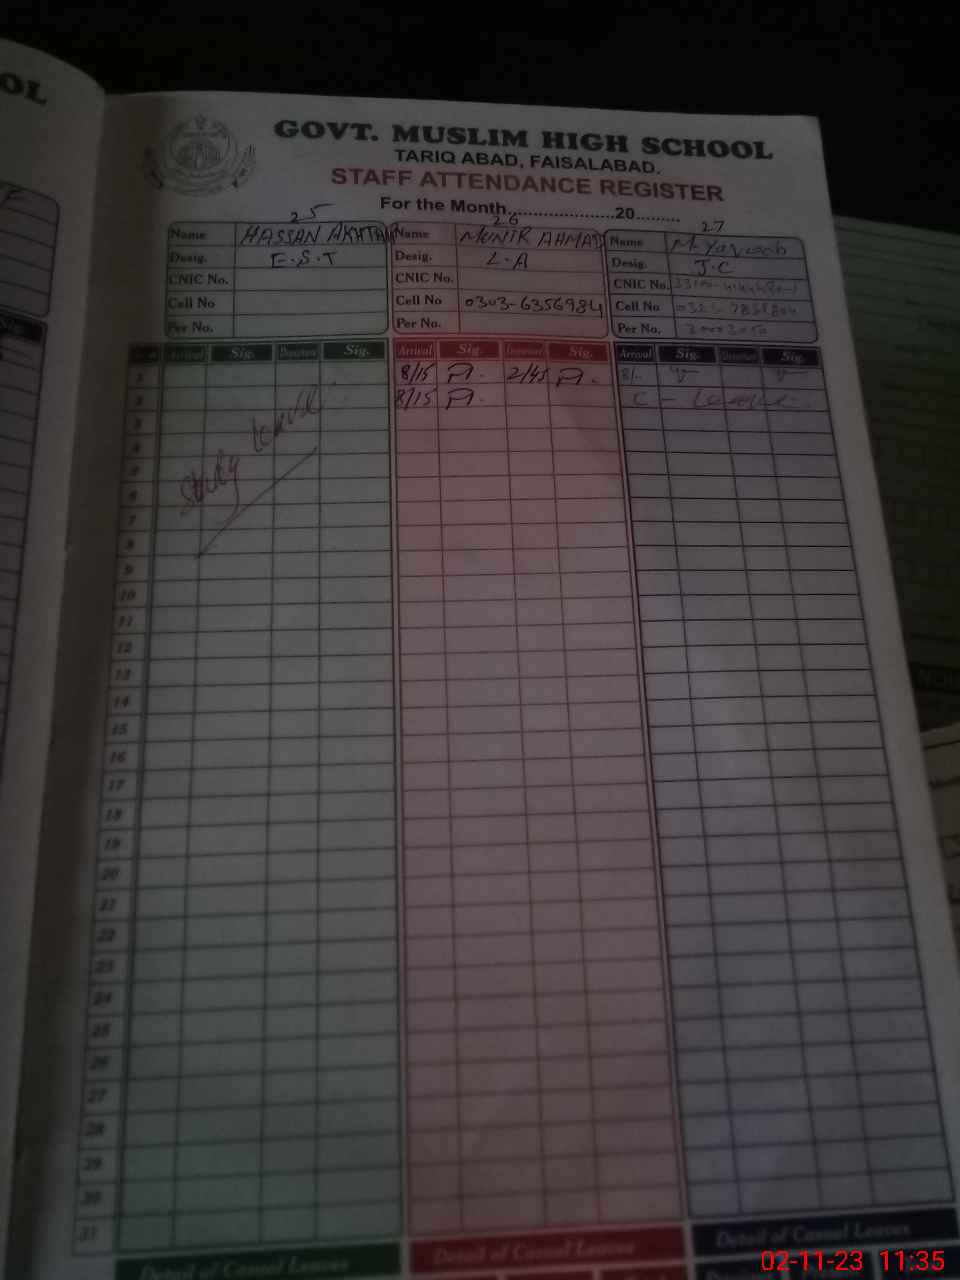 OOL
GOVT. MUSLIM HIGH SCHOOL
TARIQ ABAD, FAISALABAD.
STAFF ATTENDANCE REGISTER
For the Month.....................20.........
25 26 27
Name HASSAN AKHTAR Name MUNIR AHMAD Name M. Yaqoob
Desig. E.S.T Desig. L.A Desig. J.C
CNIC No. CNIC No. CNIC No.
Cell No Cell No 0303-6356984 Cell No
Per No. Per No. Per No.
Arrival Sig. Departure Sig. Arrival Sig. Departure Sig. Arrival Sig. Departure Sig.
1 8/15 2/45 8/-
2 8/15 C - Leave
3
4
Study Leave
5
6
7
8
9
10
11
12
13
14
15
16
17
18
19
20
21
22
23
24
25
26
27
28
29
30
31
Detail of Casual Leaves Detail of Casual Leaves Detail of Casual Leaves
02-11-23 11:35